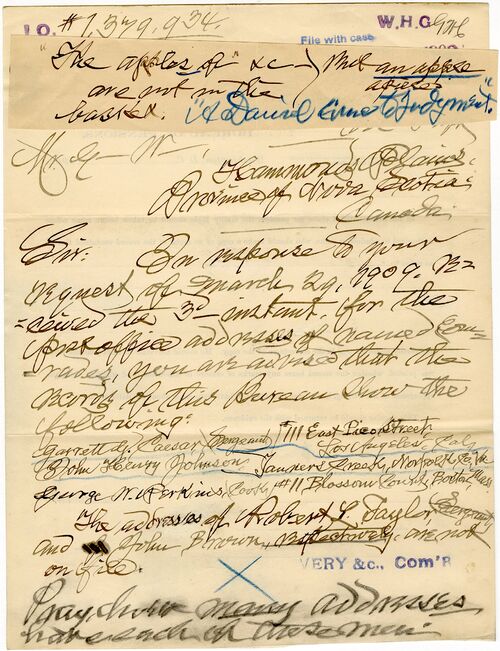 I.O. #1,379,934.
W.H.G
File with case
"The apples of" &c
are not in the
basket.
an appse
"A Daniel come to Judgment".
Mr. G- W-,
Hammonds Plains,
Province of Nova Scotia
Canada.
Sir: In response to your
request of March 29, 1909, re=
=ceived the 3d instant, for the
post office addresses of named Com=
rades, you are advised that the
records of this Bureau show the
following:
Garrett G. Caesar, Sergeant #711 East Pico Street
Los Angeles, Cal,
John Henry Johnson, Tanners Creek, Norfolk Co, Va
George W. Perkins, Cook, #11 Blossom Court, Boston, Mass.
The addresses of Robert L. Taylor, Sergeant
and John Brown, respectively, are not
on file.
VERY &c., Com'R
Pray how many addresses
have each of these men